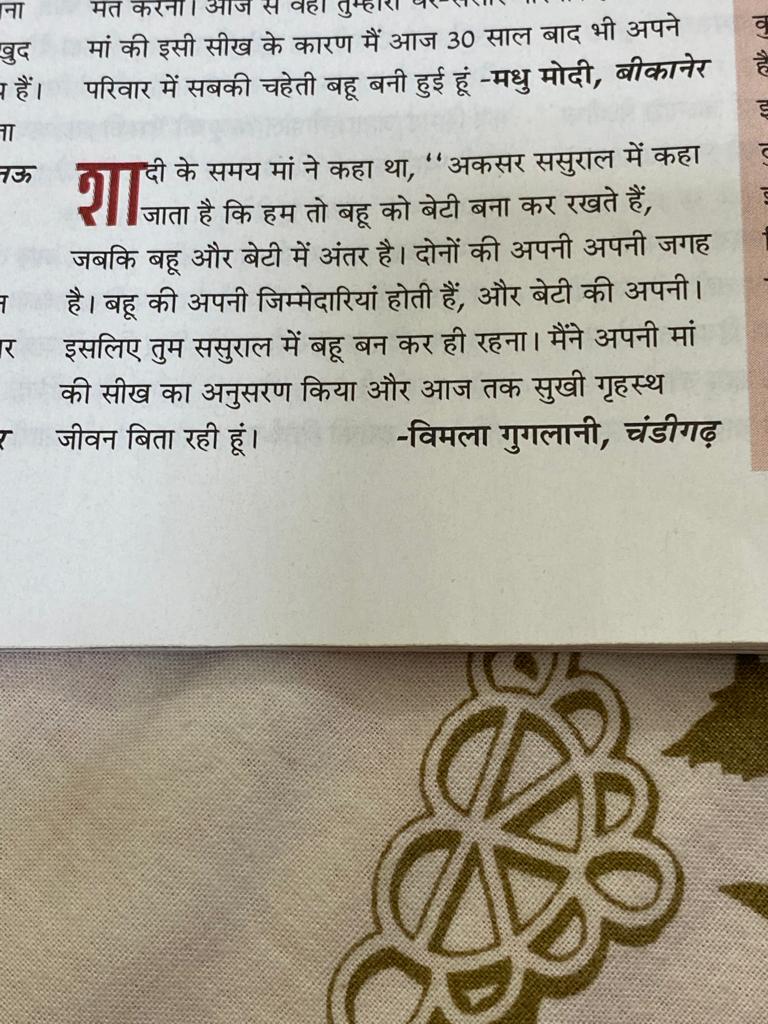 मत करना। आज से वही तुम्हारा
मां की इसी सीख के कारण मैं आज 30 साल बाद भी अपने
परिवार में सबकी चहेती बहू बनी हुई हूं -मधु मोदी, बीकानेर
शादी के समय मां ने कहा था, ‘‘अकसर ससुराल में कहा
जाता है कि हम तो बहू को बेटी बना कर रखते हैं,
जबकि बहू और बेटी में अंतर है। दोनों की अपनी अपनी जगह
है। बहू की अपनी जिम्मेदारियां होती हैं, और बेटी की अपनी।
इसलिए तुम ससुराल में बहू बन कर ही रहना। मैंने अपनी मां
की सीख का अनुसरण किया और आज तक सुखी गृहस्थ
जीवन बिता रही हूं। -विमला गुगलानी, चंडीगढ़